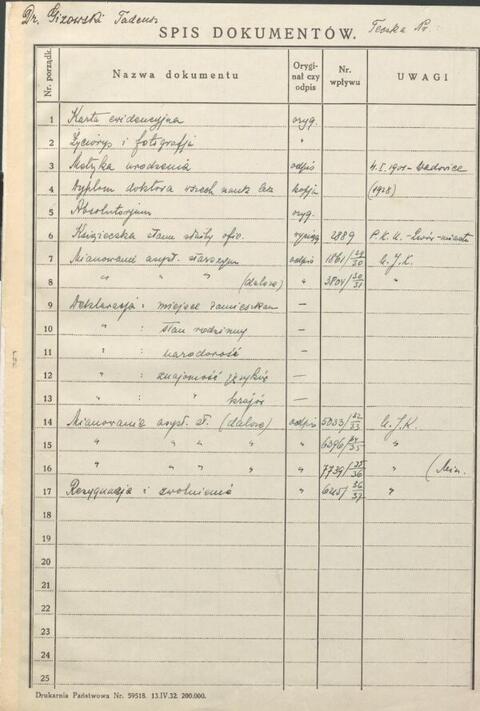 Dr. Gizowski Tadeusz
SPIS DOKUMENTÓW.
Teczka Nr.
Nr. porządk.
Nazwa dokumentu
Orygi-
nał czy
odpis
Nr.
wpływu
UWAGI
1 Karta ewidencyjna oryg.
2 Życiorys i fotografja "
3 Metryka urodzenia odpis 4.I.1901-Wadowice
4 Dyplom doktora wszech nauk lek kopja (1928)
5 Absolutorjum oryg.
6 Książeczka stanu służby ofic. wyciąg 2889 P.K.U.-Lwów-miasto
7 Mianowanie asyst. starszym odpis 1861/29/30 U.J.K.
8 " " " (dalsze) " 3804/30/31 "
9 Deklaracja: miejsce zamieszkan —
10 " : stan rodzinny —
11 " : narodowość —
12 " : znajomość języków —
13 " : " krajów —
14 Mianowanie asyst. st. (dalsze) odpis 5033/32/33 U.J.K.
15 " " " " " 6396/34/35 "
16 " " " " " 7739/35/36 " (Min.
17 Rezygnacja i zwolnienie " 6245/36/37 "
18
19
20
21
22
23
24
25
Drukarnia Państwowa Nr. 59518. 13.IV.32. 200.000.